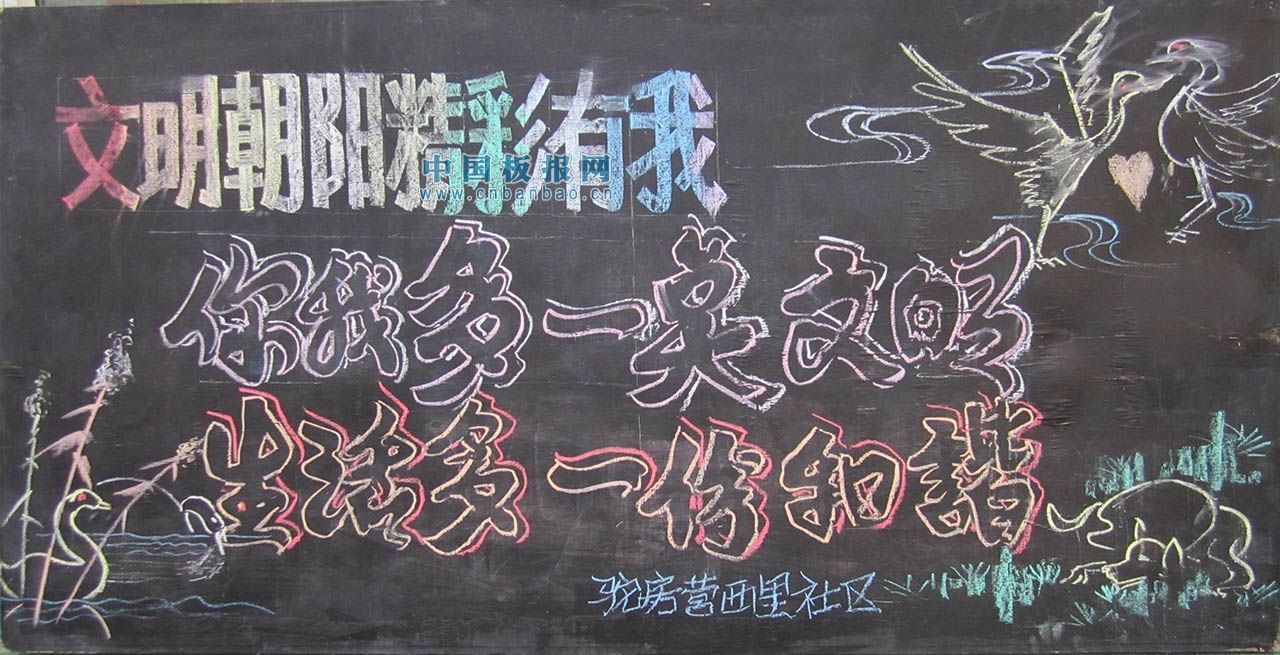 文明朝阳精彩有我
中国板报网
www.cnbanbao.cn
你我多一点文明
生活多一份和谐
驼房营西里社区